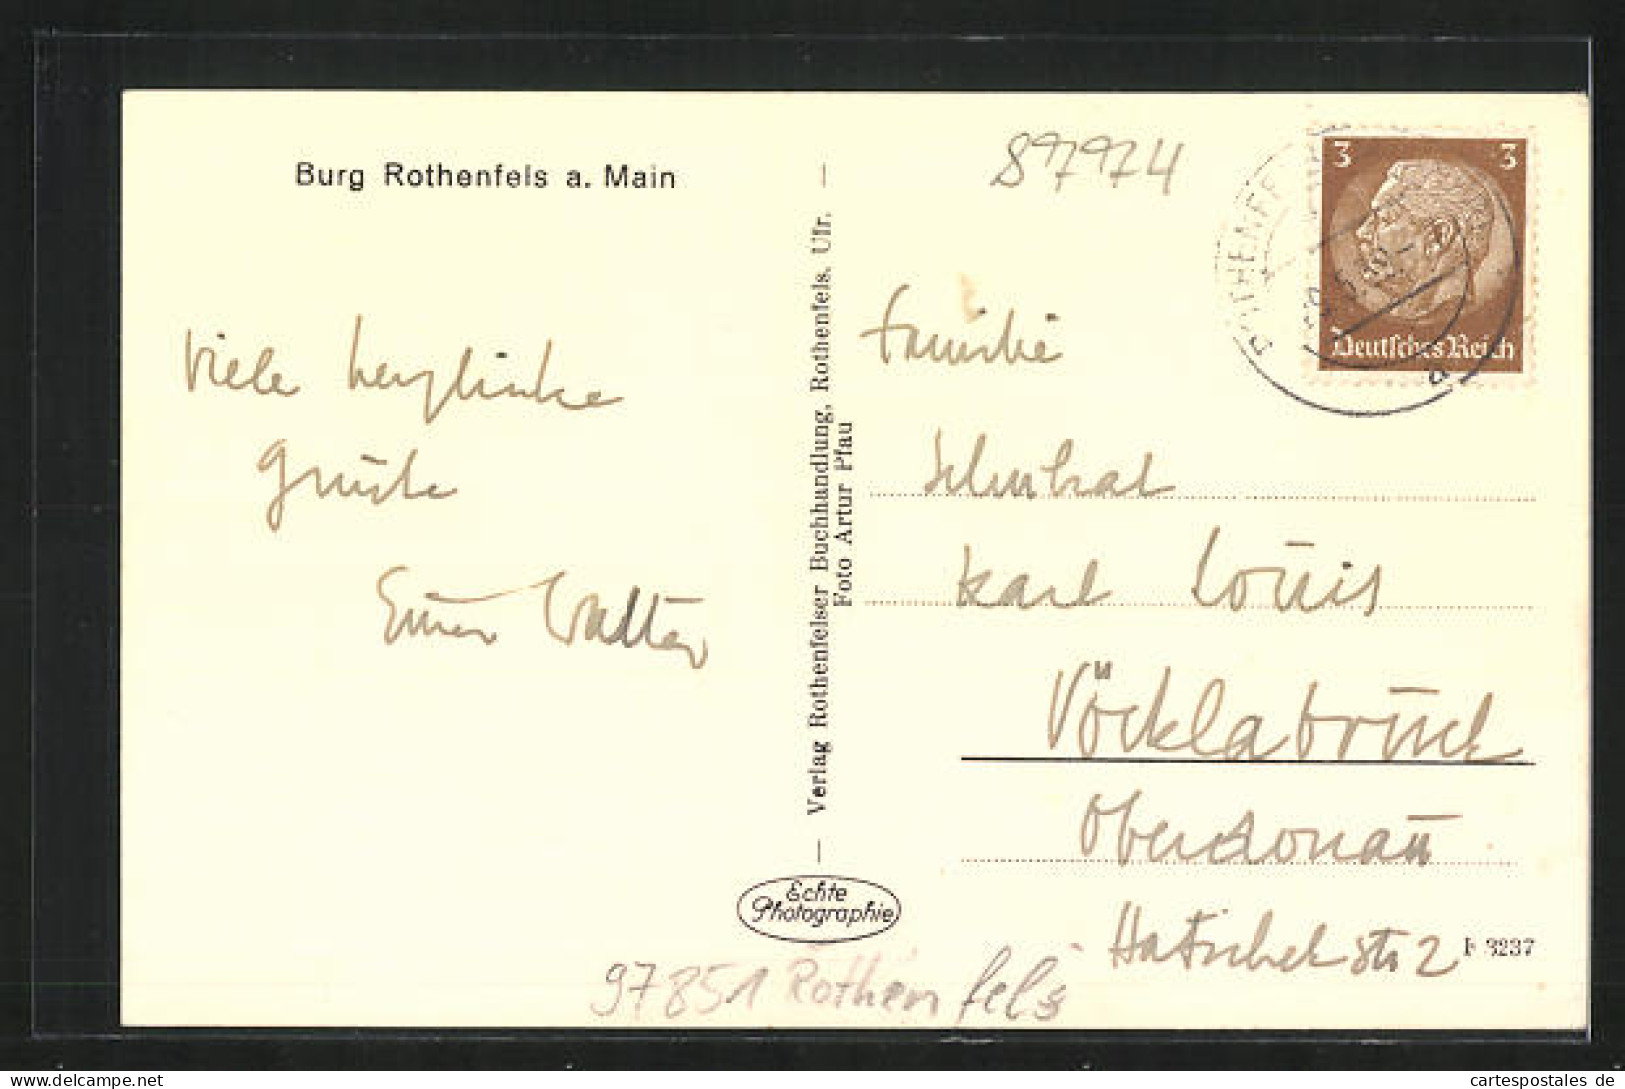 Burg Rothenfels a. Main
Viele herzliche
Grüße
Euer Walter
Verlag Rothenfelser Buchhandlung, Rothenfels, Ufr.
Foto Artur Pfau
Echte
Photographie
97851 Rothenfels
3 3
Deutsches Reich
a
Familie
Schulrat
Karl Louis
Vöcklabruck
Oberdonau
Hatschekstr 2
F 3237
cartespostales de